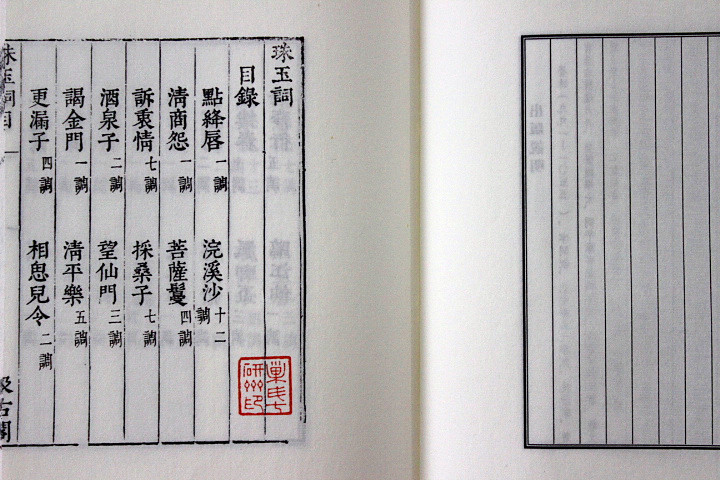 珠玉詞
目錄
點絳唇 一調
浣溪沙 十二調
清商怨 一調
菩薩鬘 四調
訴衷情 七調
採桑子 七調
酒泉子 二調
望仙門 三調
謁金門 一調
清平樂 五調
更漏子 四調
相思兒令 二調
珠玉詞目 一
汲古閣
出版說明